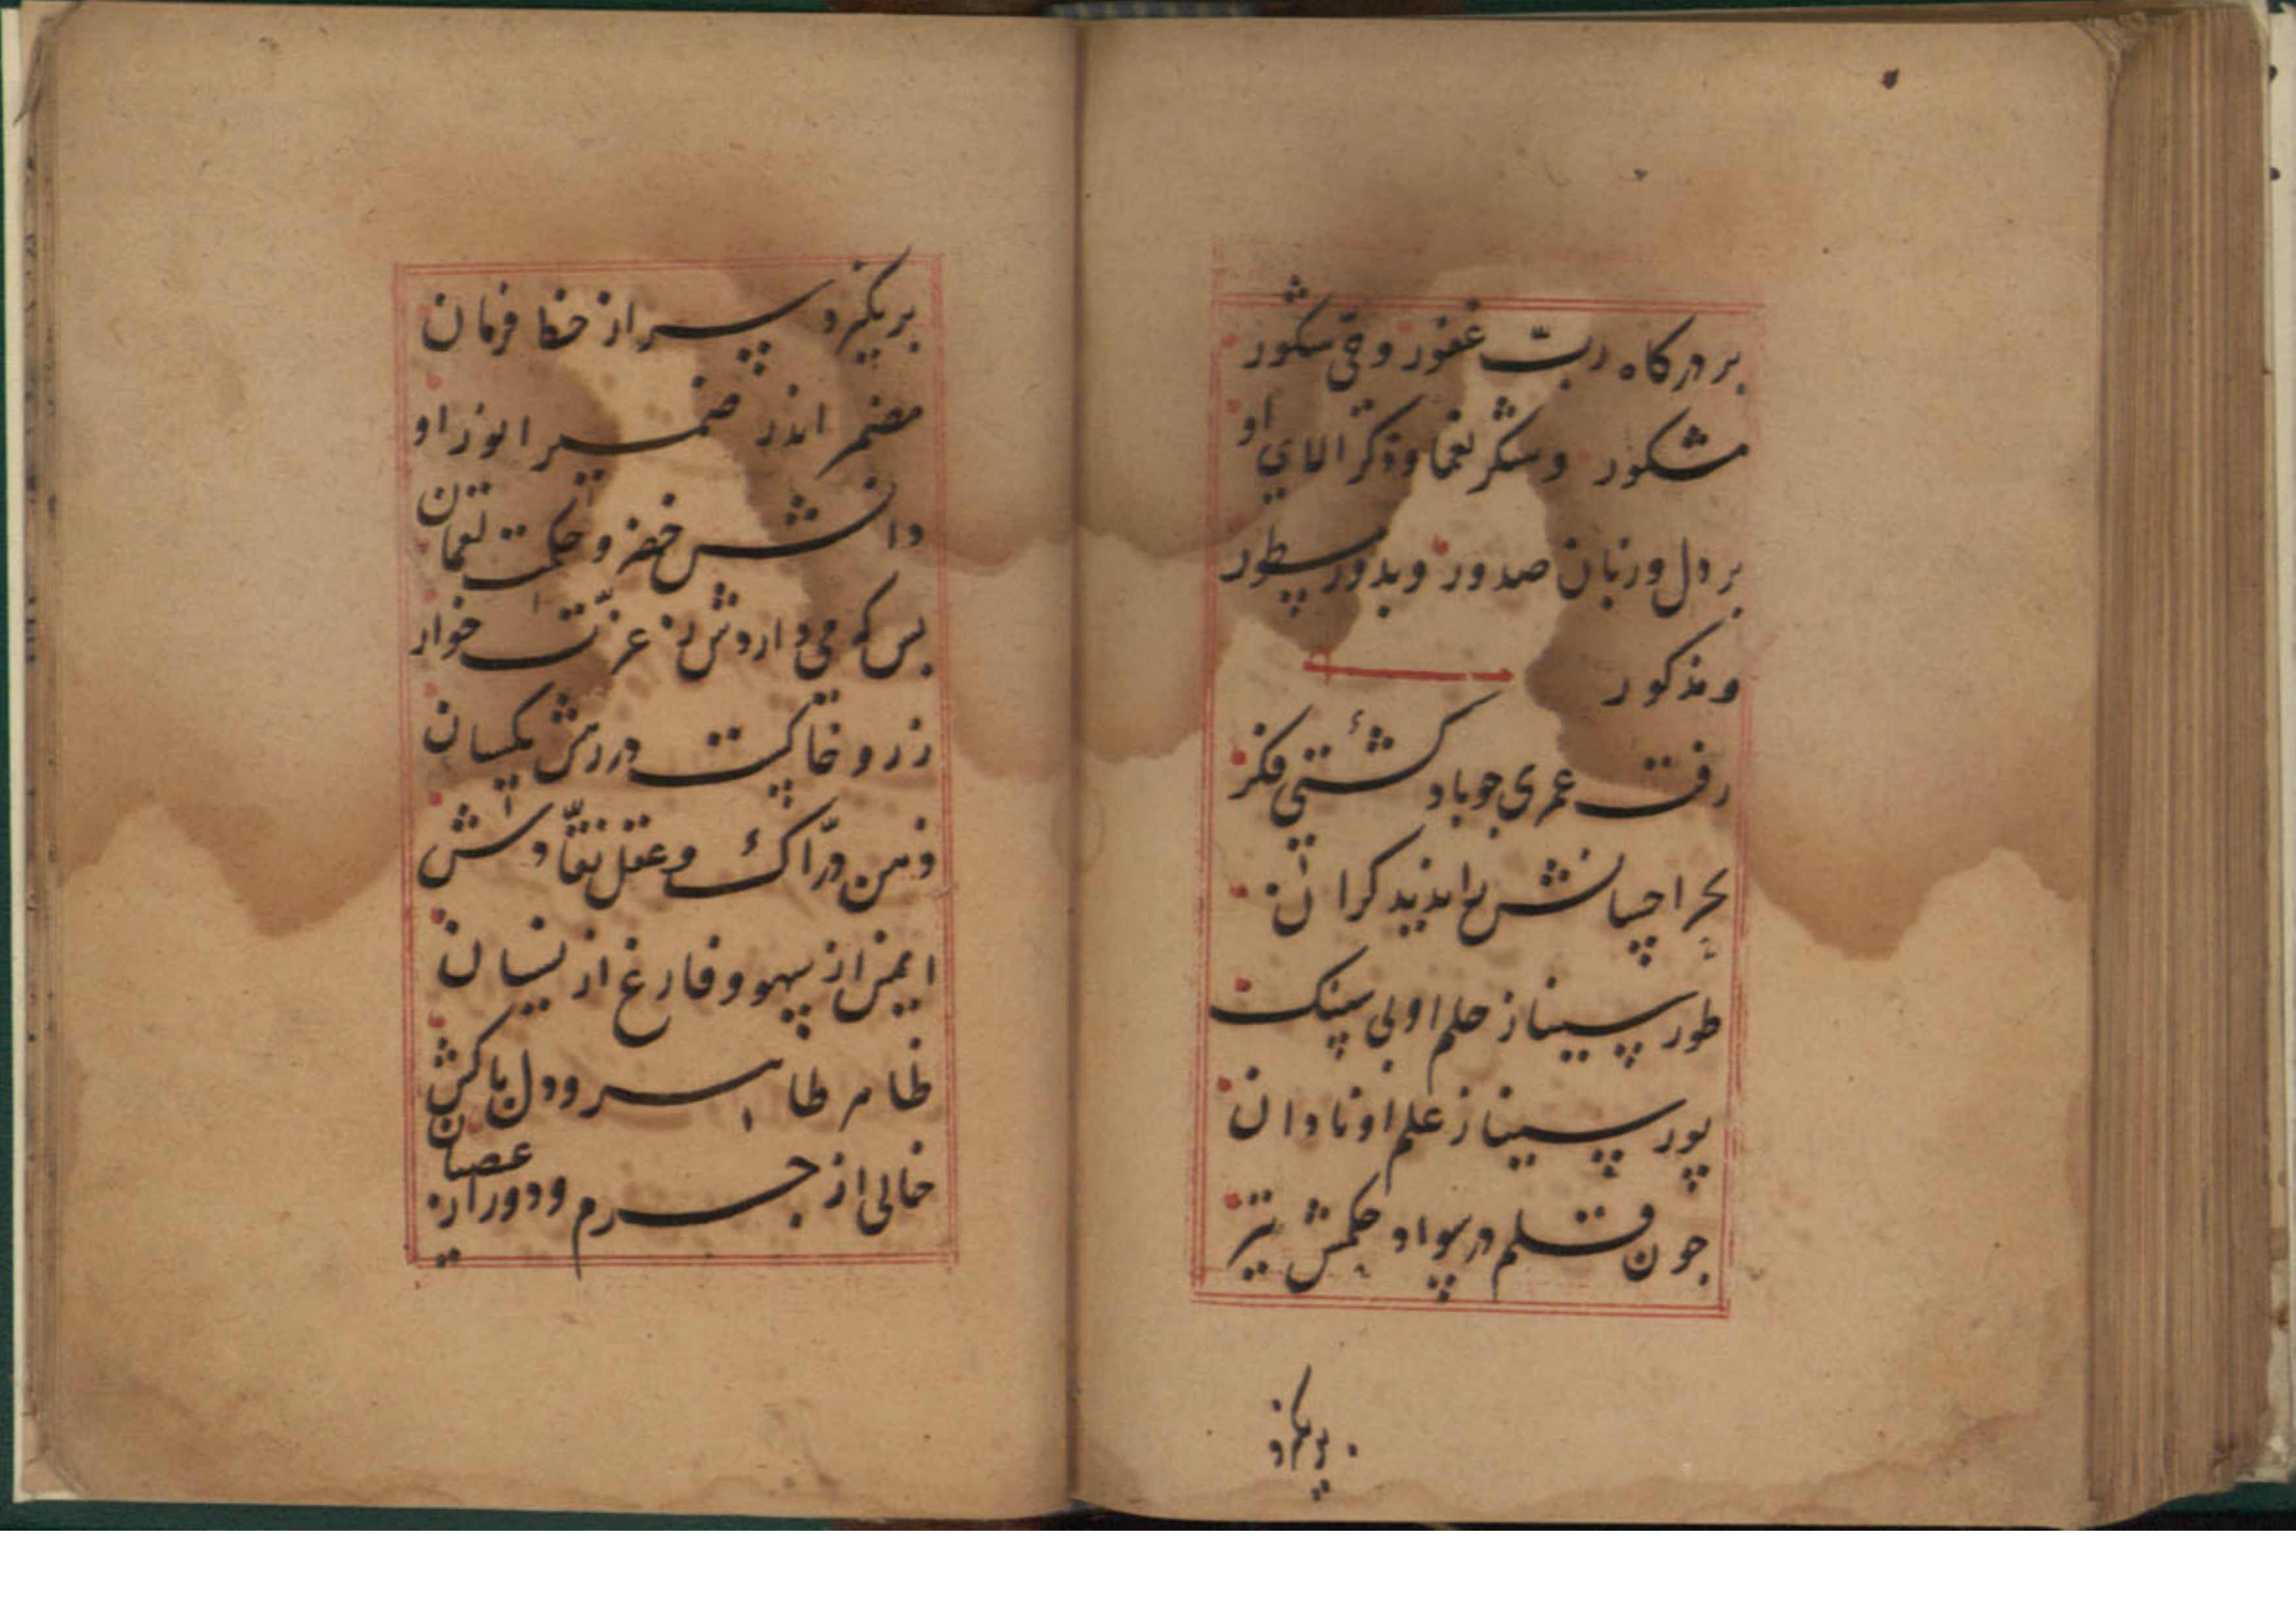 بر درکاه ربّ غفور و حیّ شکور
مشکور و شکر نعما و ذکر الای او
بر دل و زبان صدور و بدور سطور
و مذکور
رفت عمری جو باد کشتئ فکر
بحر احسانش را ندید کران
طور سینا ز حلم او بی سنک
پور سینا ز علم او نادان
جون قلم در سواد حکمش تیز
برنکیرد
برنکیرد سر از خط فرمان
مضمر اندر ضمیر انور او
دانش خضر و حکمت لقمان
بس که می داردش ز عزت خوار
زر و خاکست در رهش یکسان
ذهن درّاک و عقل نقّادش
ایمن از سهو و فارغ از نسیان
ظاهر طاهر و دل پاکش
خالی از جرم و دور از عصیان